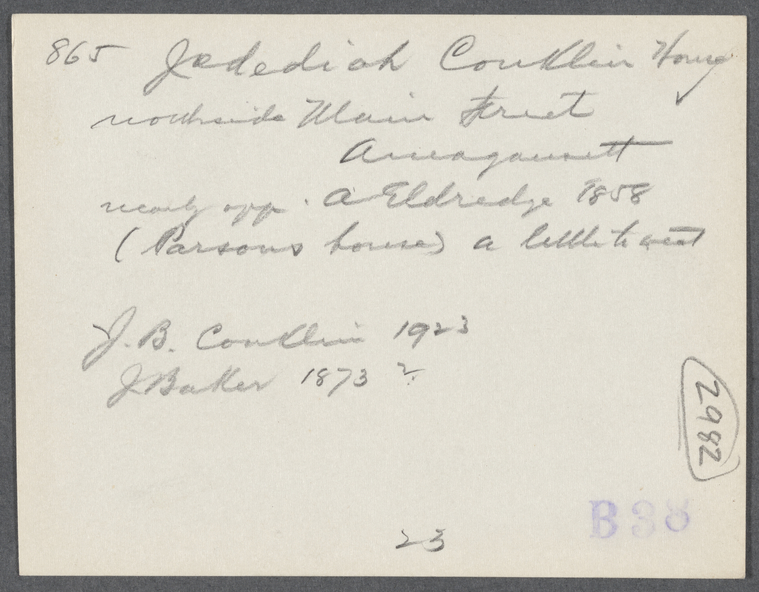 865 Jedediah Conklin House
northside Main Street
Amagansett
nearly opp. A Eldredge 1858
(Parsons house) a little to west
J. B. Conklin 1923
J Baker 1873 ?
2982
B38
23